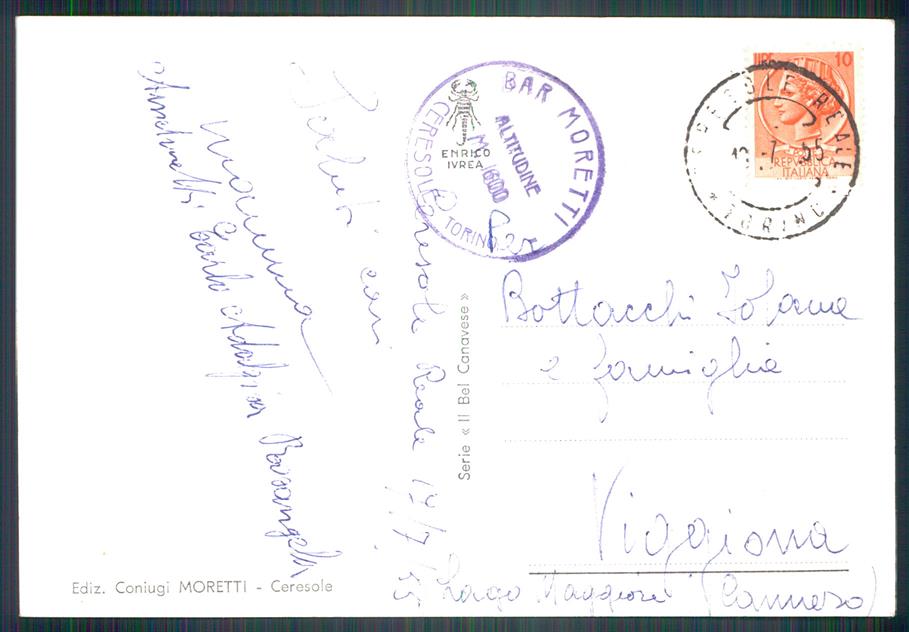 Ceresole Reale 17/7/55
Saluti cari
mamma
Carlo
BAR MORETTI
ALTITUDINE
M. 1600
CERESOLE
TORINO
ENRICO
IVREA
LIRE 10
REPUBBLICA
ITALIANA
CERESOLE REALE
7.55
* TORINO
Bottacchi Iolanda
e famiglia
Viggiona
(Cannero)
Lago Maggiore
Serie « Il Bel Canavese »
Ediz. Coniugi MORETTI - Ceresole